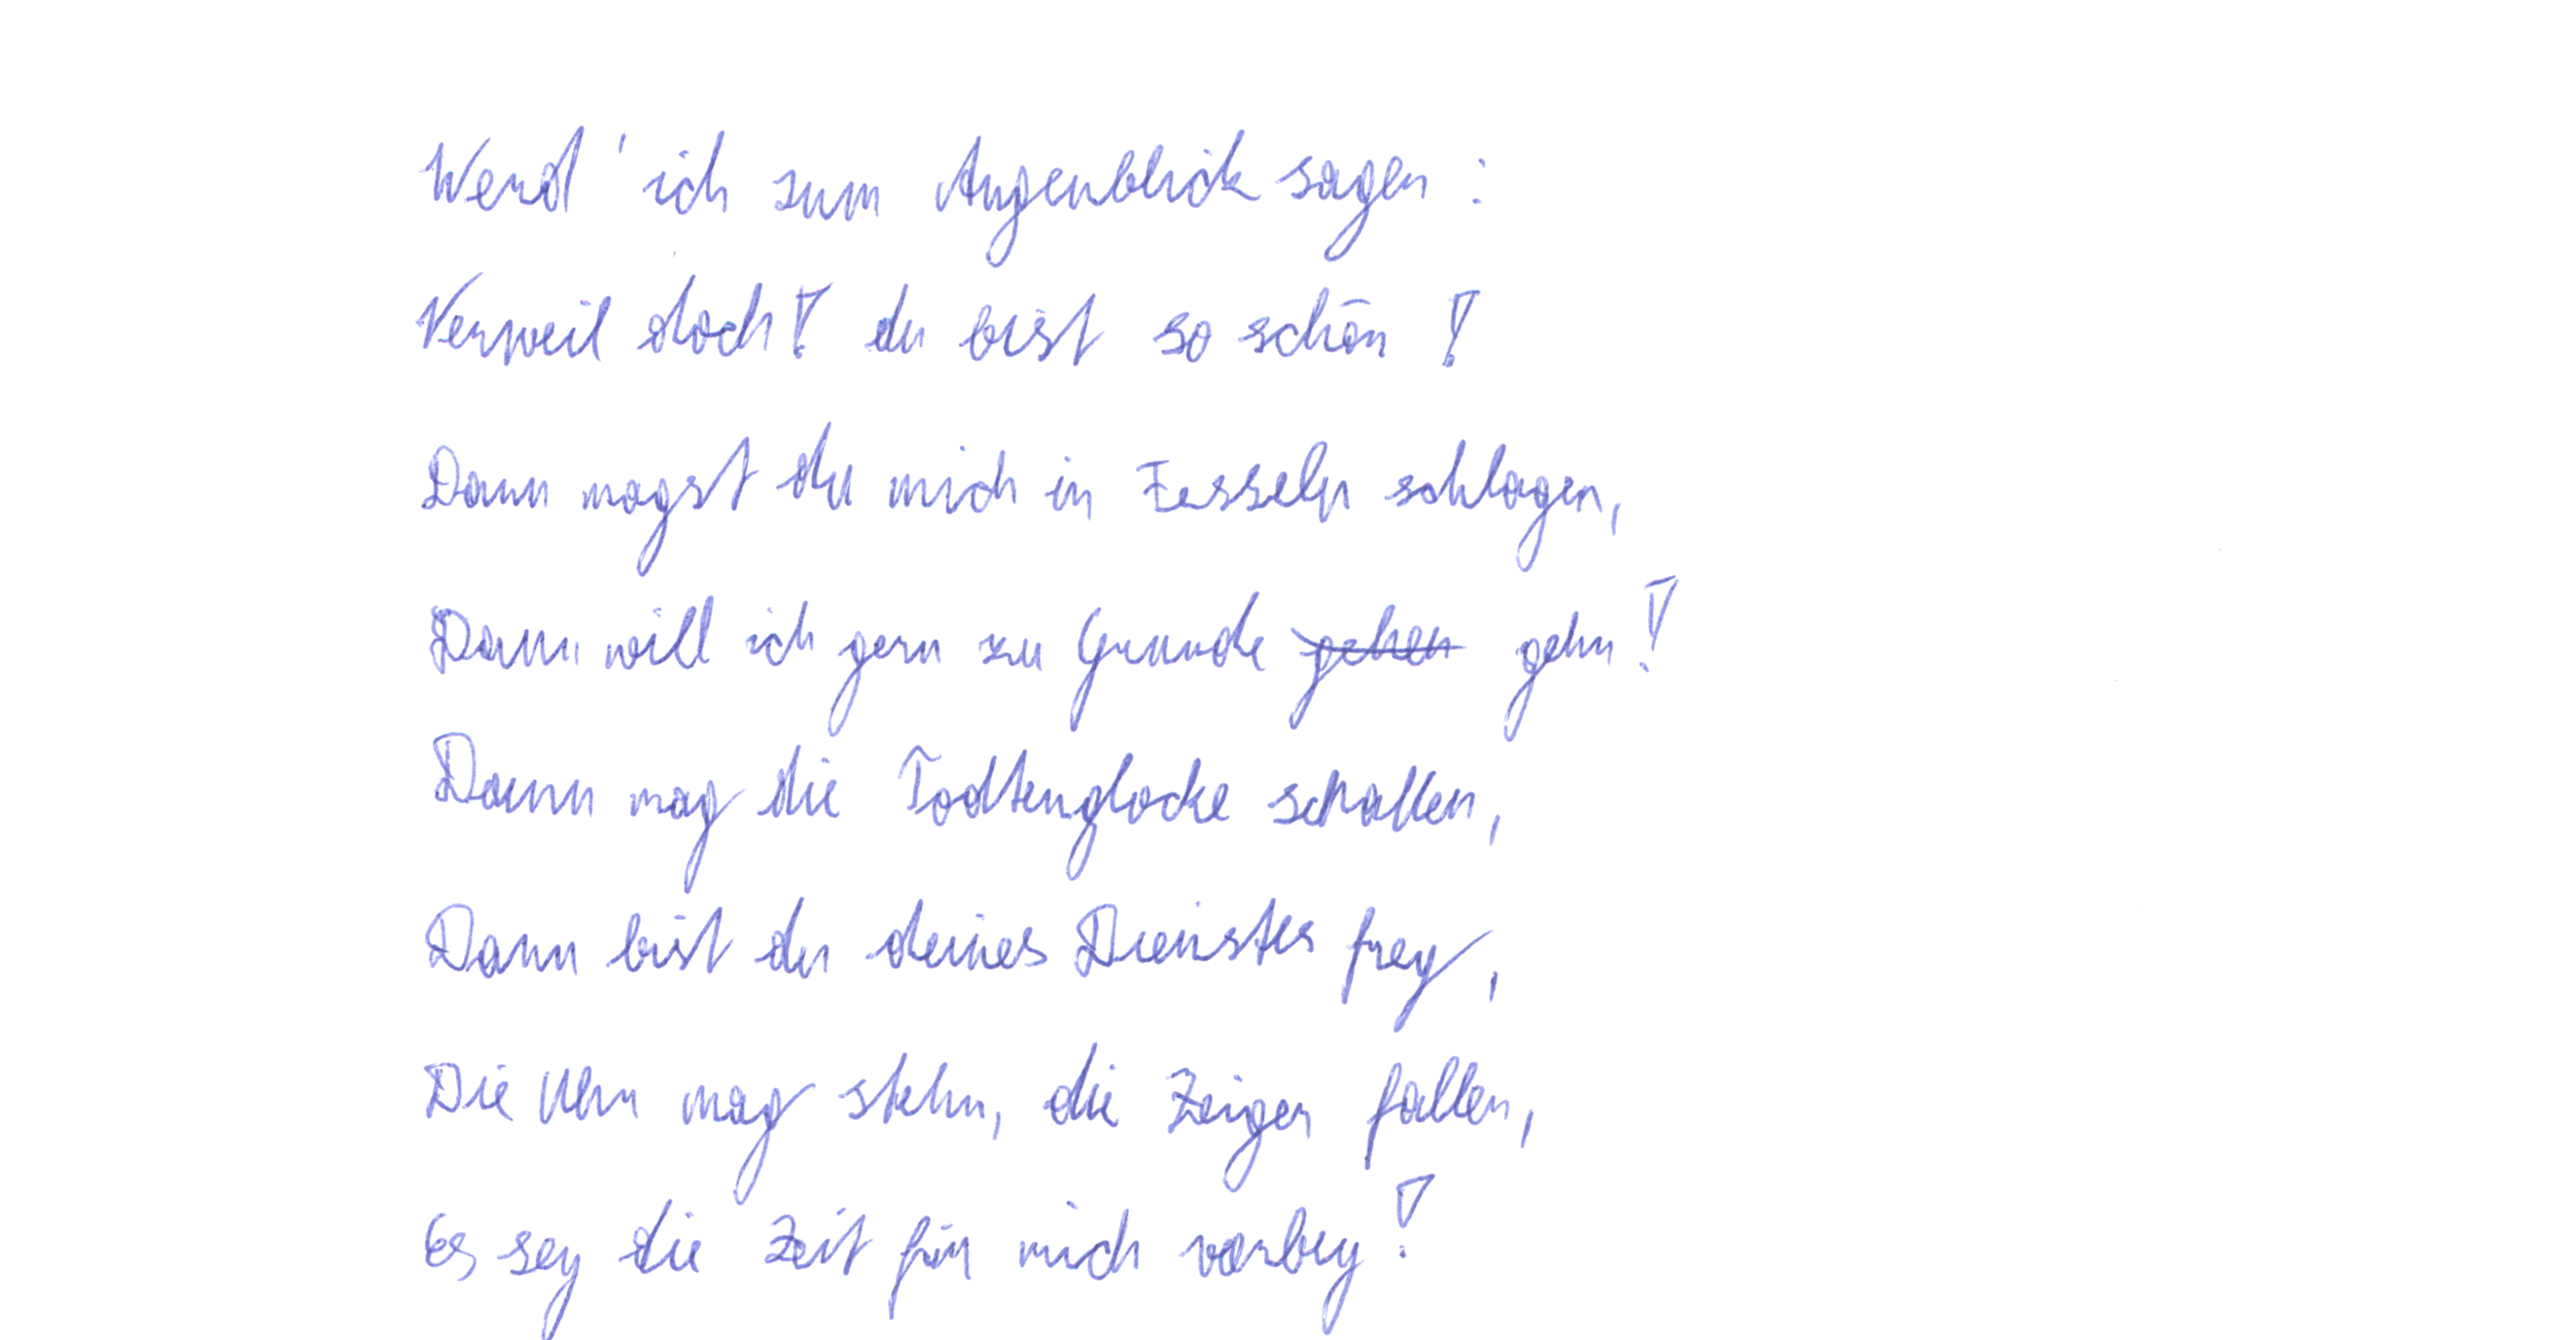 Werd' ich zum Augenblick sagen:
Verweil doch! du bist so schön!
Dann magst du mich in Fesseln schlagen,
Dann will ich gern zu Grunde gehen gehn!
Dann mag die Todtenglocke schallen,
Dann bist du deines Dienstes frey,
Die Uhr mag stehn, die Zeiger fallen,
Es sey die Zeit für mich vorbey!